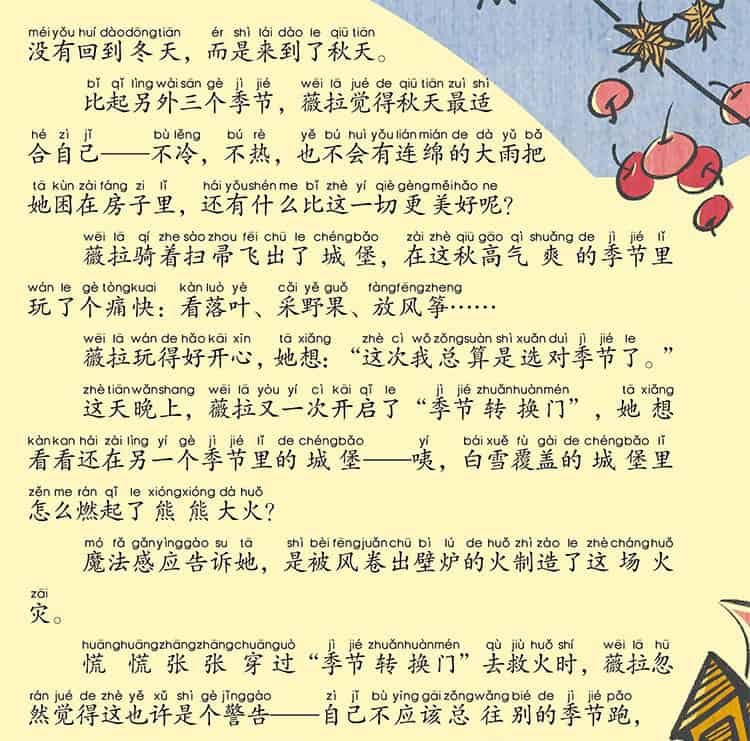 méi yǒu huí dào dōng tiān ér shì lái dào le qiū tiān
没有回到冬天，而是来到了秋天。
bǐ qǐ lìng wài sān gè jì jié wēi lā jué de qiū tiān zuì shì
比起另外三个季节，薇拉觉得秋天最适
hé zì jǐ bù lěng bú rè yě bú huì yǒu lián mián de dà yǔ bǎ
合自己——不冷，不热，也不会有连绵的大雨把
tā kùn zài fáng zi lǐ hái yǒu shén me bǐ zhè yí qiè gèng měi hǎo ne
她困在房子里，还有什么比这一切更美好呢？
wēi lā qí zhe sào zhou fēi chū le chéng bǎo zài zhè qiū gāo qì shuǎng de jì jié lǐ
薇拉骑着扫帚飞出了城堡，在这秋高气爽的季节里
wán le gè tòng kuai kàn luò yè cǎi yě guǒ fàng fēng zheng
玩了个痛快：看落叶、采野果、放风筝……
wēi lā wán de hǎo kāi xīn tā xiǎng zhè cì wǒ zǒng suàn shì xuǎn duì jì jié le
薇拉玩得好开心，她想：“这次我总算是选对季节了。”
zhè tiān wǎn shang wēi lā yòu yí cì kāi qǐ le jì jié zhuǎn huàn mén tā xiǎng
这天晚上，薇拉又一次开启了“季节转换门”，她想
kàn kan hái zài lìng yí gè jì jié lǐ de chéng bǎo yí bái xuě fù gài de chéng bǎo lǐ
看看还在另一个季节里的城堡——咦，白雪覆盖的城堡里
zěn me rán qǐ le xióng xióng dà huǒ
怎么燃起了熊熊大火？
mó fǎ gǎn yìng gào su tā shì bèi fēng juǎn chū bì lú de huǒ zhì zào le zhè cháng huǒ
魔法感应告诉她，是被风卷出壁炉的火制造了这场火
zāi
灾。
huāng huāng zhāng zhāng chuān guò jì jié zhuǎn huàn mén qù jiù huǒ shí wēi lā hū
慌慌张张穿过“季节转换门”去救火时，薇拉忽
rán jué de zhè yě xǔ shì gè jǐng gào zì jǐ bù yīng gāi zǒng wǎng bié de jì jié pǎo
然觉得这也许是个警告——自己不应该总往别的季节跑，